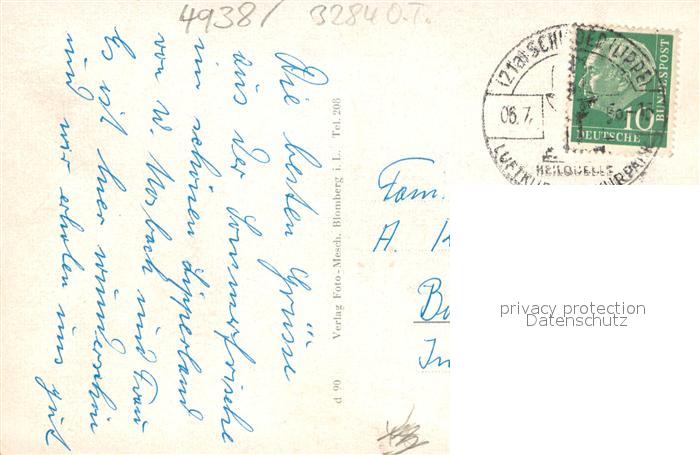 4938/ 3284 O.T.
Die besten Grüsse
aus der Sommerfrische
im schönen Lipperland
von W. und Frau
Es ist hier wunderschön
und wir erholen uns gut
d 90 Verlag Foto-Mesch, Blomberg i. L. Tel. 208
Fam.
A.
(21a) SCHIEDER (LIPPE)
06.7.
HEILQUELLE
LUFTKUR KURPARK
10
BUNDESPOST
DEUTSCHE
privacy protection
Datenschutz